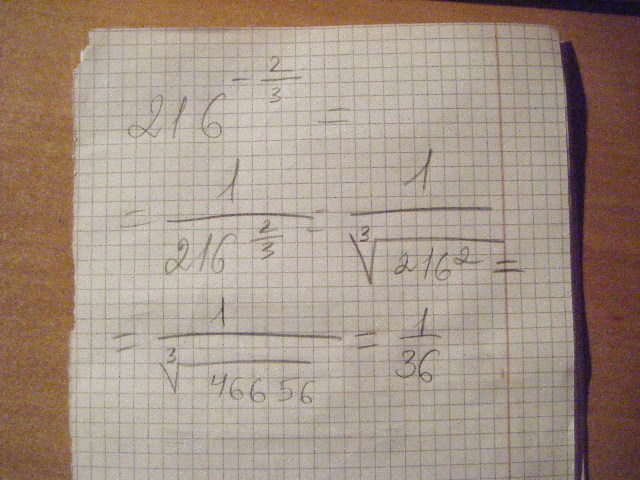 216^{-\frac{2}{3}} =
= \frac{1}{216^{\frac{2}{3}}} = \frac{1}{\sqrt[3]{216^2}} =
= \frac{1}{\sqrt[3]{46656}} = \frac{1}{36}